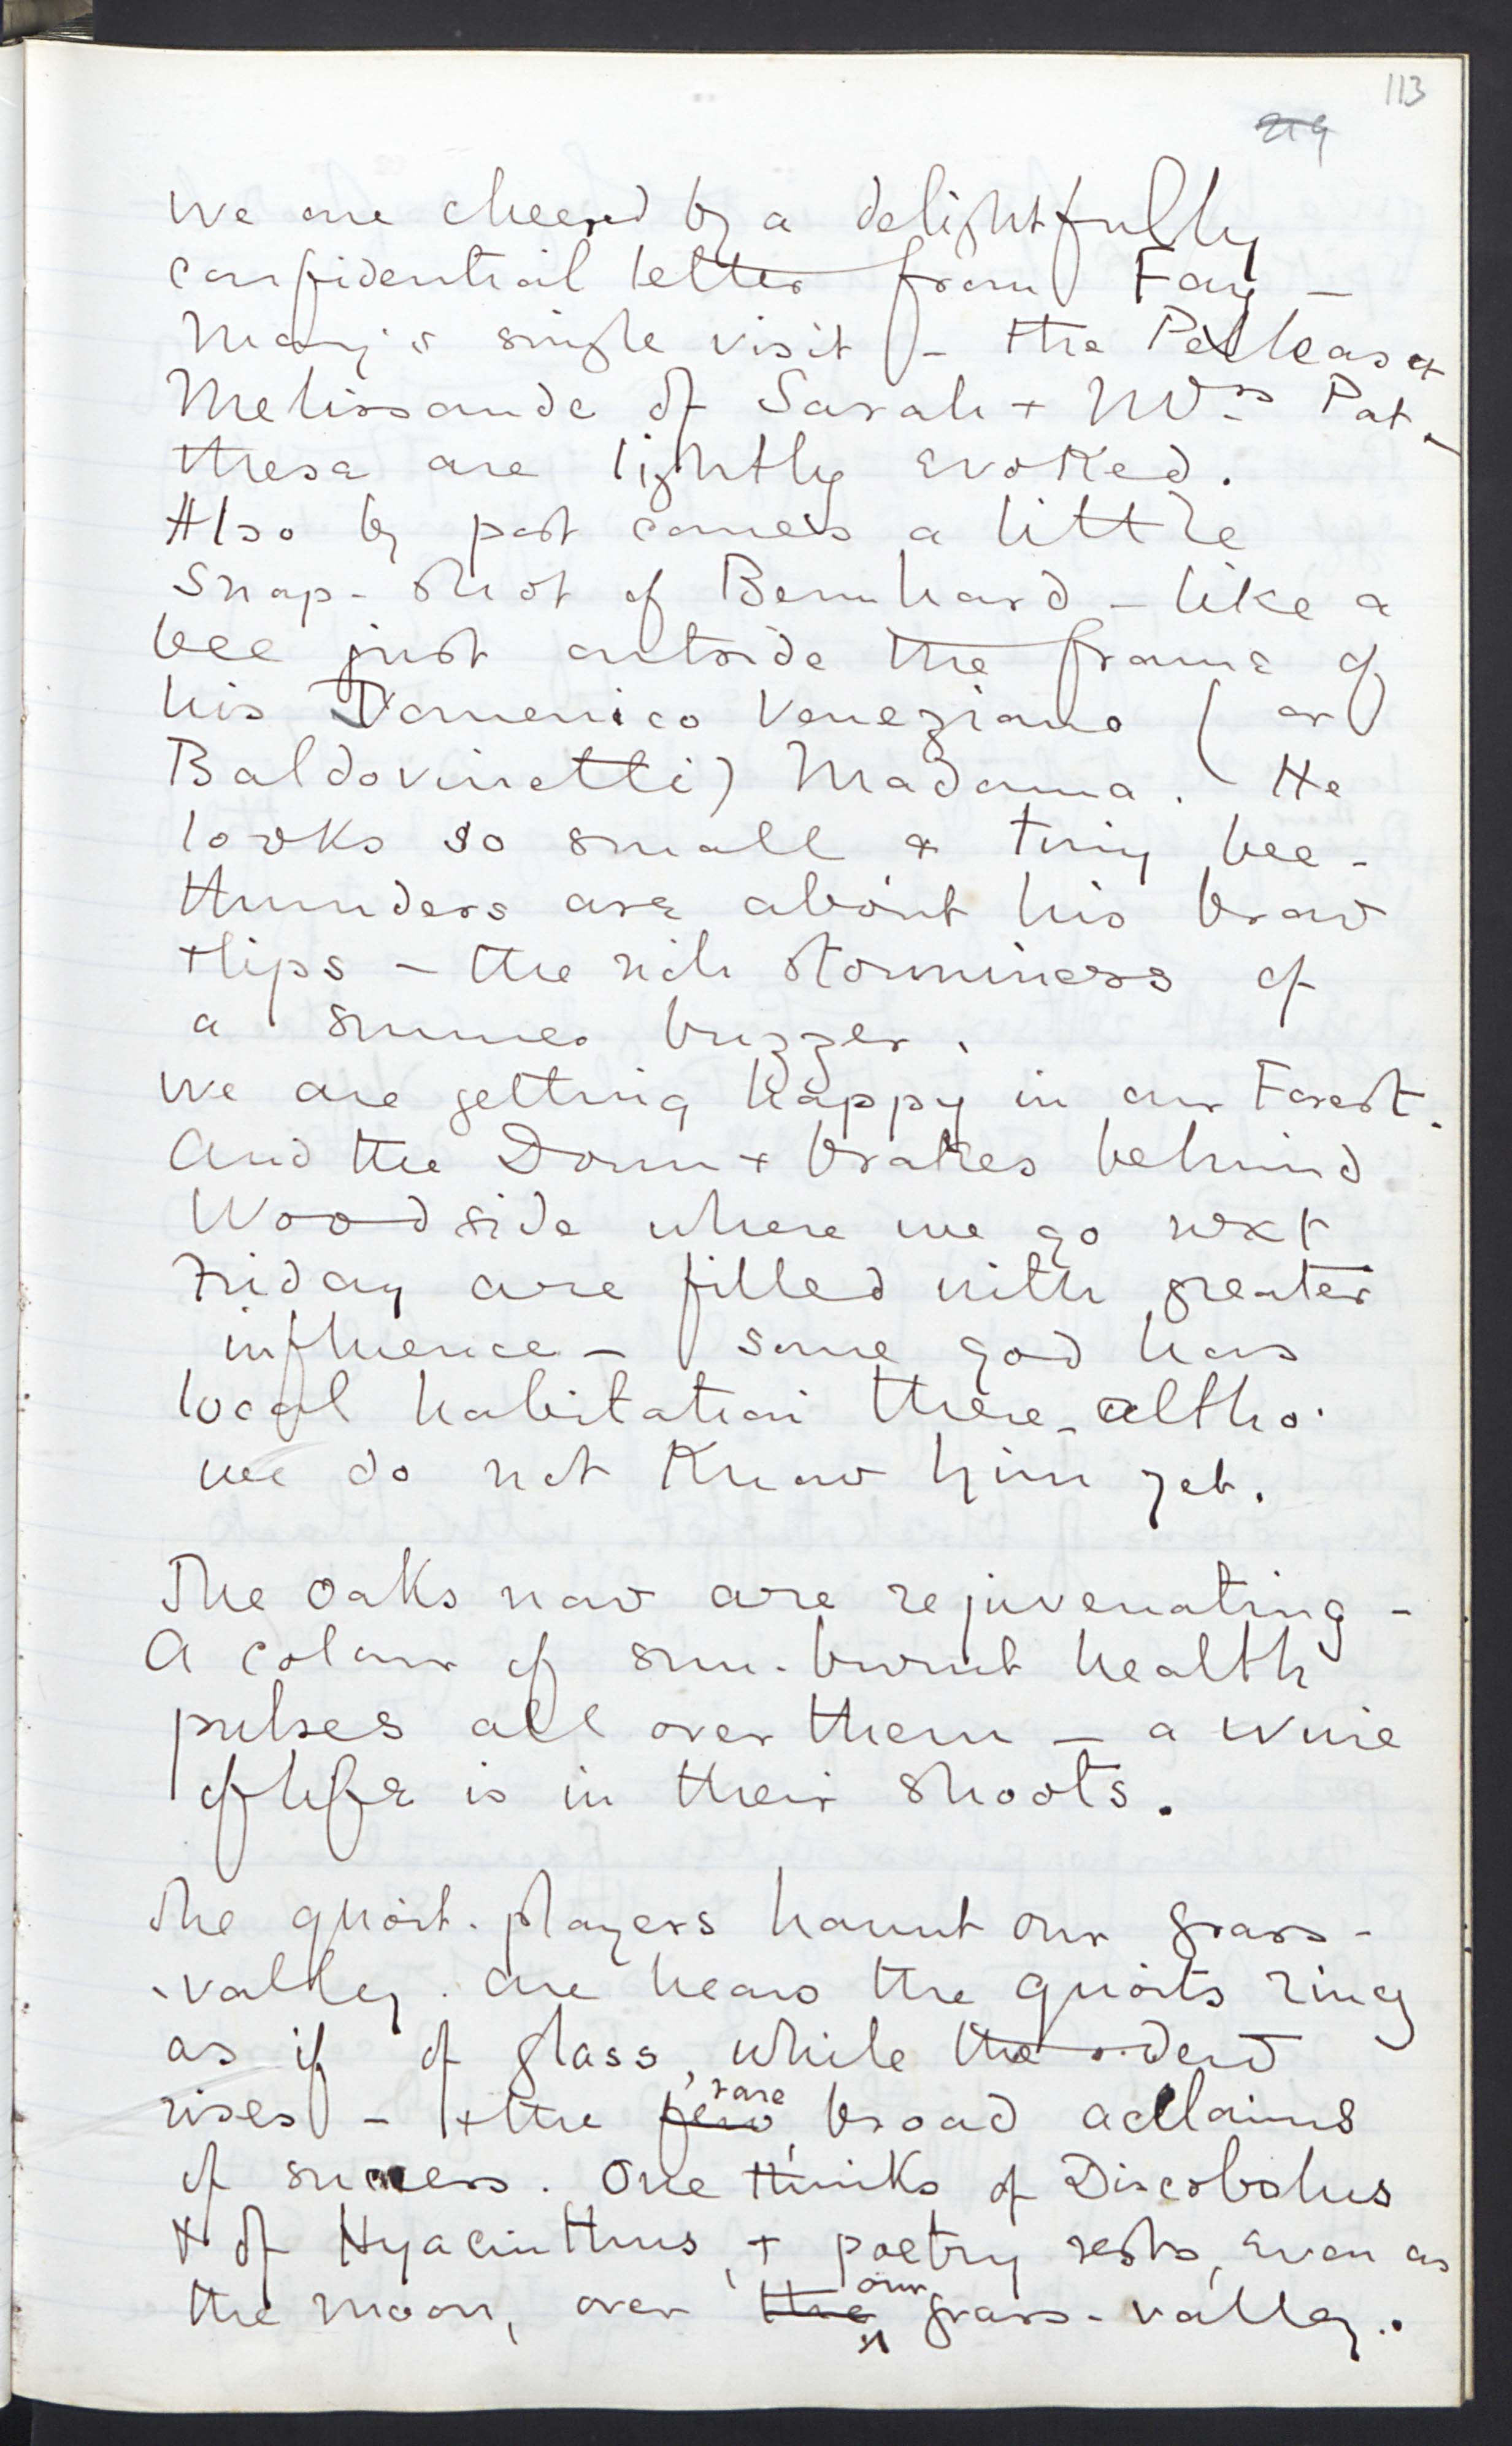 113
219
We are cheered by a delightfully
confidential letter from Fay -
Mary's single visit - the Pelleas &
Melissande of Sarah + Mrs Pat -
these are lightly evoked.
Also by post comes a little
Snap-shot of Bernhard - like a
bee just outside the frame of
his Domenico Veneziano (or
Baldovinetti) Madonna. He
looks so small & tiny bee -
thunders are about his brow
+ lips - the rich storminess of
a summer buzzer.
We are getting happy in our Forest.
And the Down + brakes behind
Woodside where we go next
Friday are filled with greater
influence - some god has
local habitation there - altho'
we do not know him yet.
The oaks now are rejuvenating -
A colour of sun-burnt health
pulses all over them - a wine
of life is in their shoots.
The quoit-players haunt our grass-
valley. One hears the quoits ring
as if of glass, while the dew
rises - + the few, rare broad acclaims
of success. One thinks of Discobolus
& of Hyacinthus, + poetry rests, even as
the moon, over the our grass-valley.